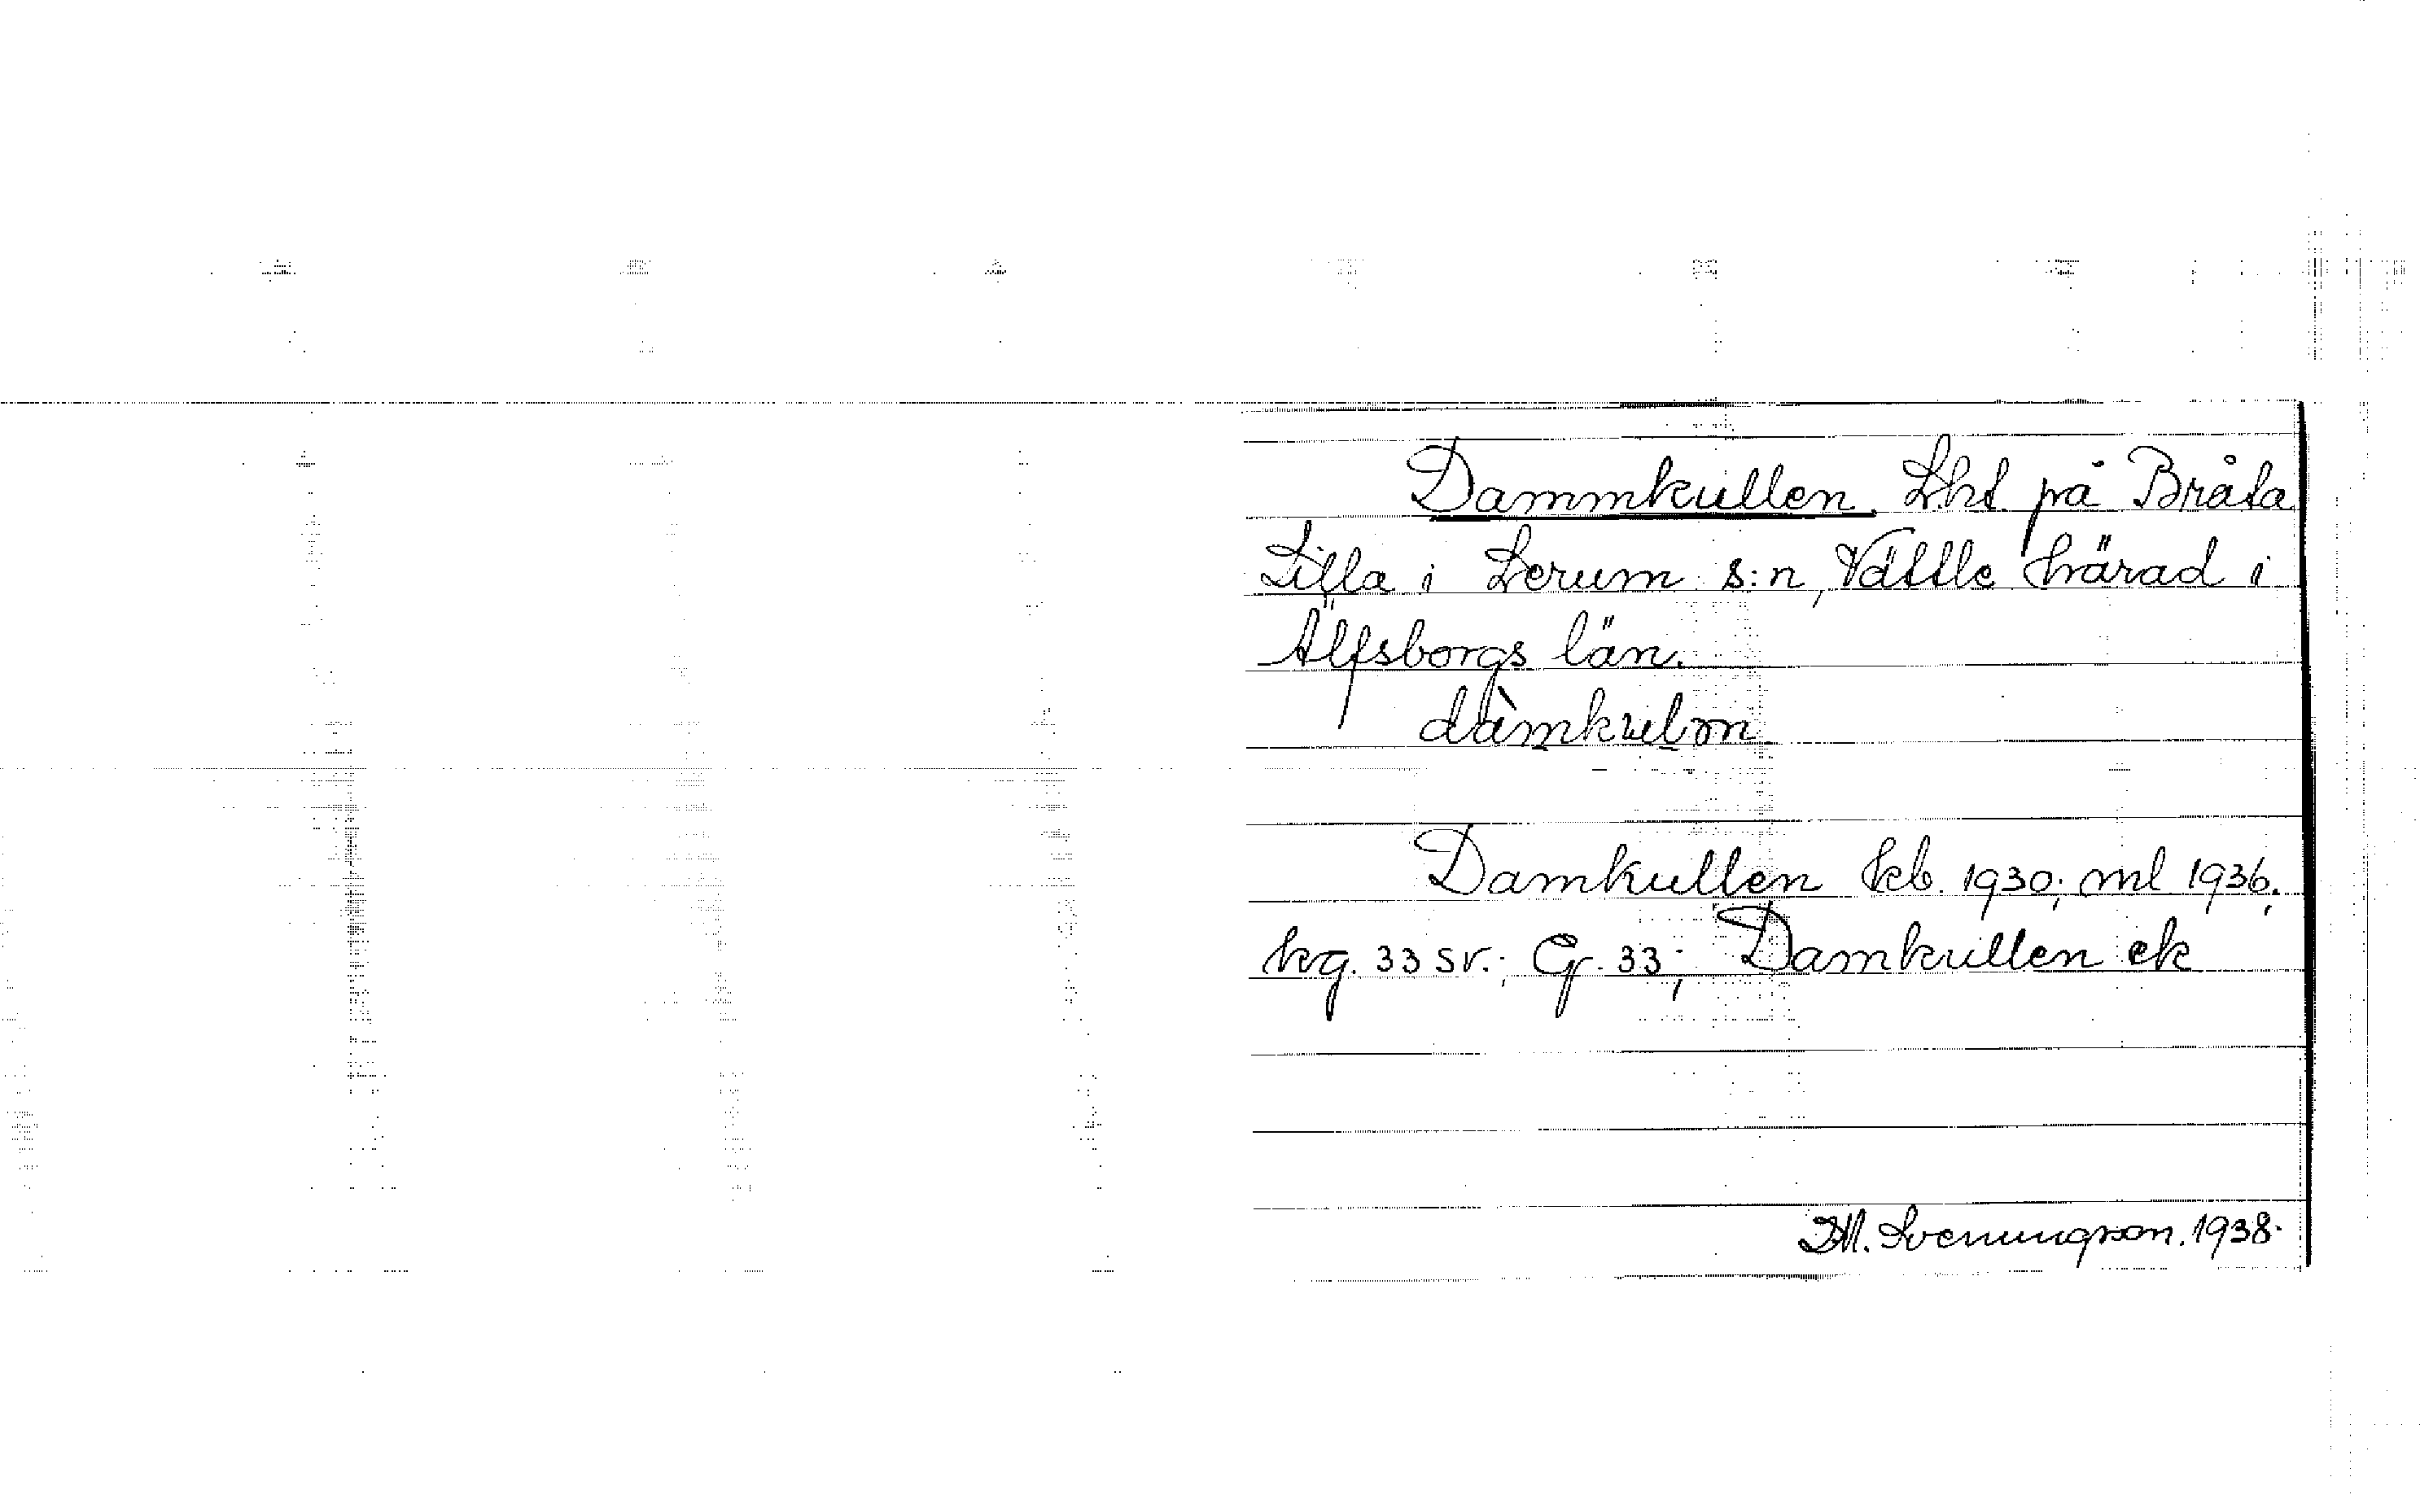 Dammkullen. Lht. på Bråta
Lilla i Lerum s:n, Vättle härad i
Älfsborgs län.
Damkullen kb. 1930; ml 1936;
kg. 33 sv.; G. 33; Damkullen ek
M. Svenungson. 1938.